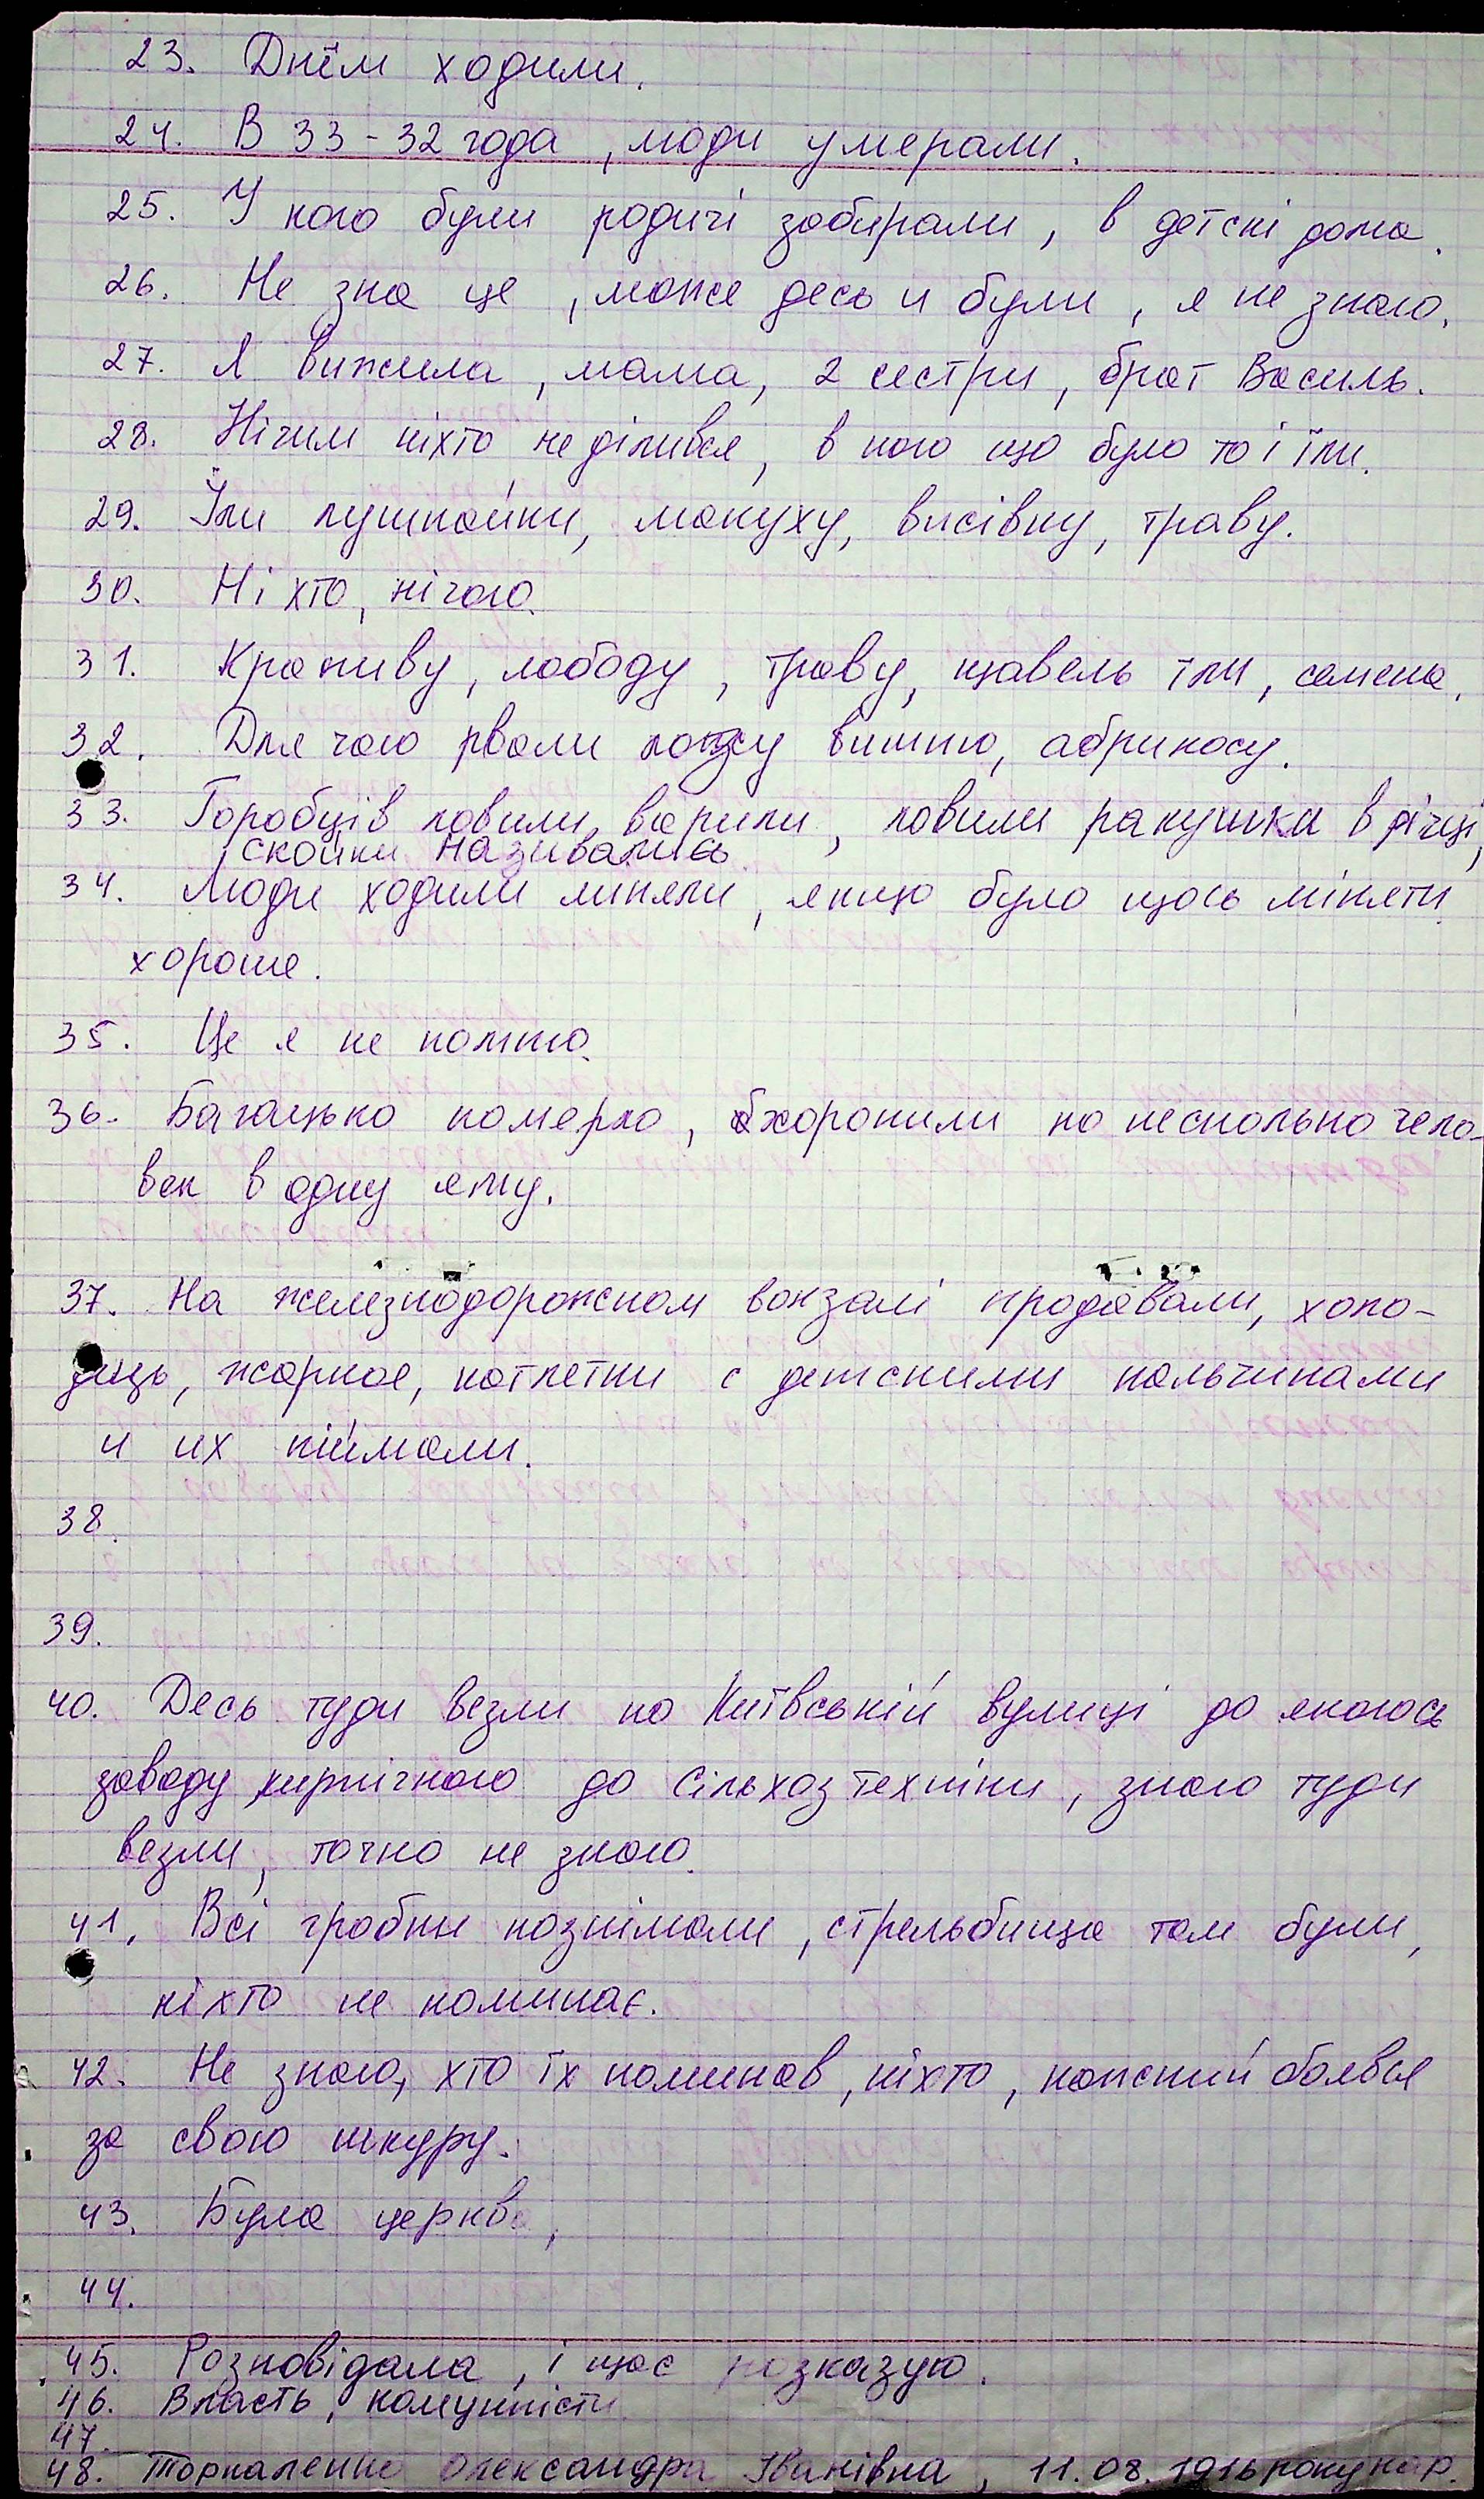 23. Днём ходили.
24. В 33-32 года, люди умерали.
25. У кого були родичі забирали, в детскі дома.
26. Не зна це, може десь и були, я не знаю.
27. Я вижила, мама, 2 сестри, брат Василь.
28. Нічим ніхто не ділився, в кого що було то і їли.
29. Їли лушпайки, макуху, висівку, траву.
30. Ні хто, нічого.
31. Крапиву, лободу, траву, щавель їли, семена.
32. Для чого рвали лозу вишню, абрикосу.
33. Горобців ловили, варили, ловили ракушки в річці,
скойки називались
34. Люди ходили міняли, якщо було щось міняти
хороше.
35. Це я не помню.
36. Багацько померло, хоронили по несколько чело-
век в одну яму.
37. На железнодорожном вокзалі продавали, холо-
дець, жаркое, котлетки с детскими пальчиками
и их піймали.
38.
39.
40. Десь туди везли по Київській вулиці до якогось
заводу кирпічного до Сільхозтехніки, знаю туди
везли, точно не знаю.
41. Всі гробки познімали, стрельбища там були,
ніхто не поминає.
42. Не знаю, хто їх поминав, ніхто, кожний боявся
за свою шкуру.
43. Була церква,
44.
45. Розповідала, і щас розказую.
46. Власть, комуністи
47.
48. Олександра Іванівна, 11.08.1916 року нар.